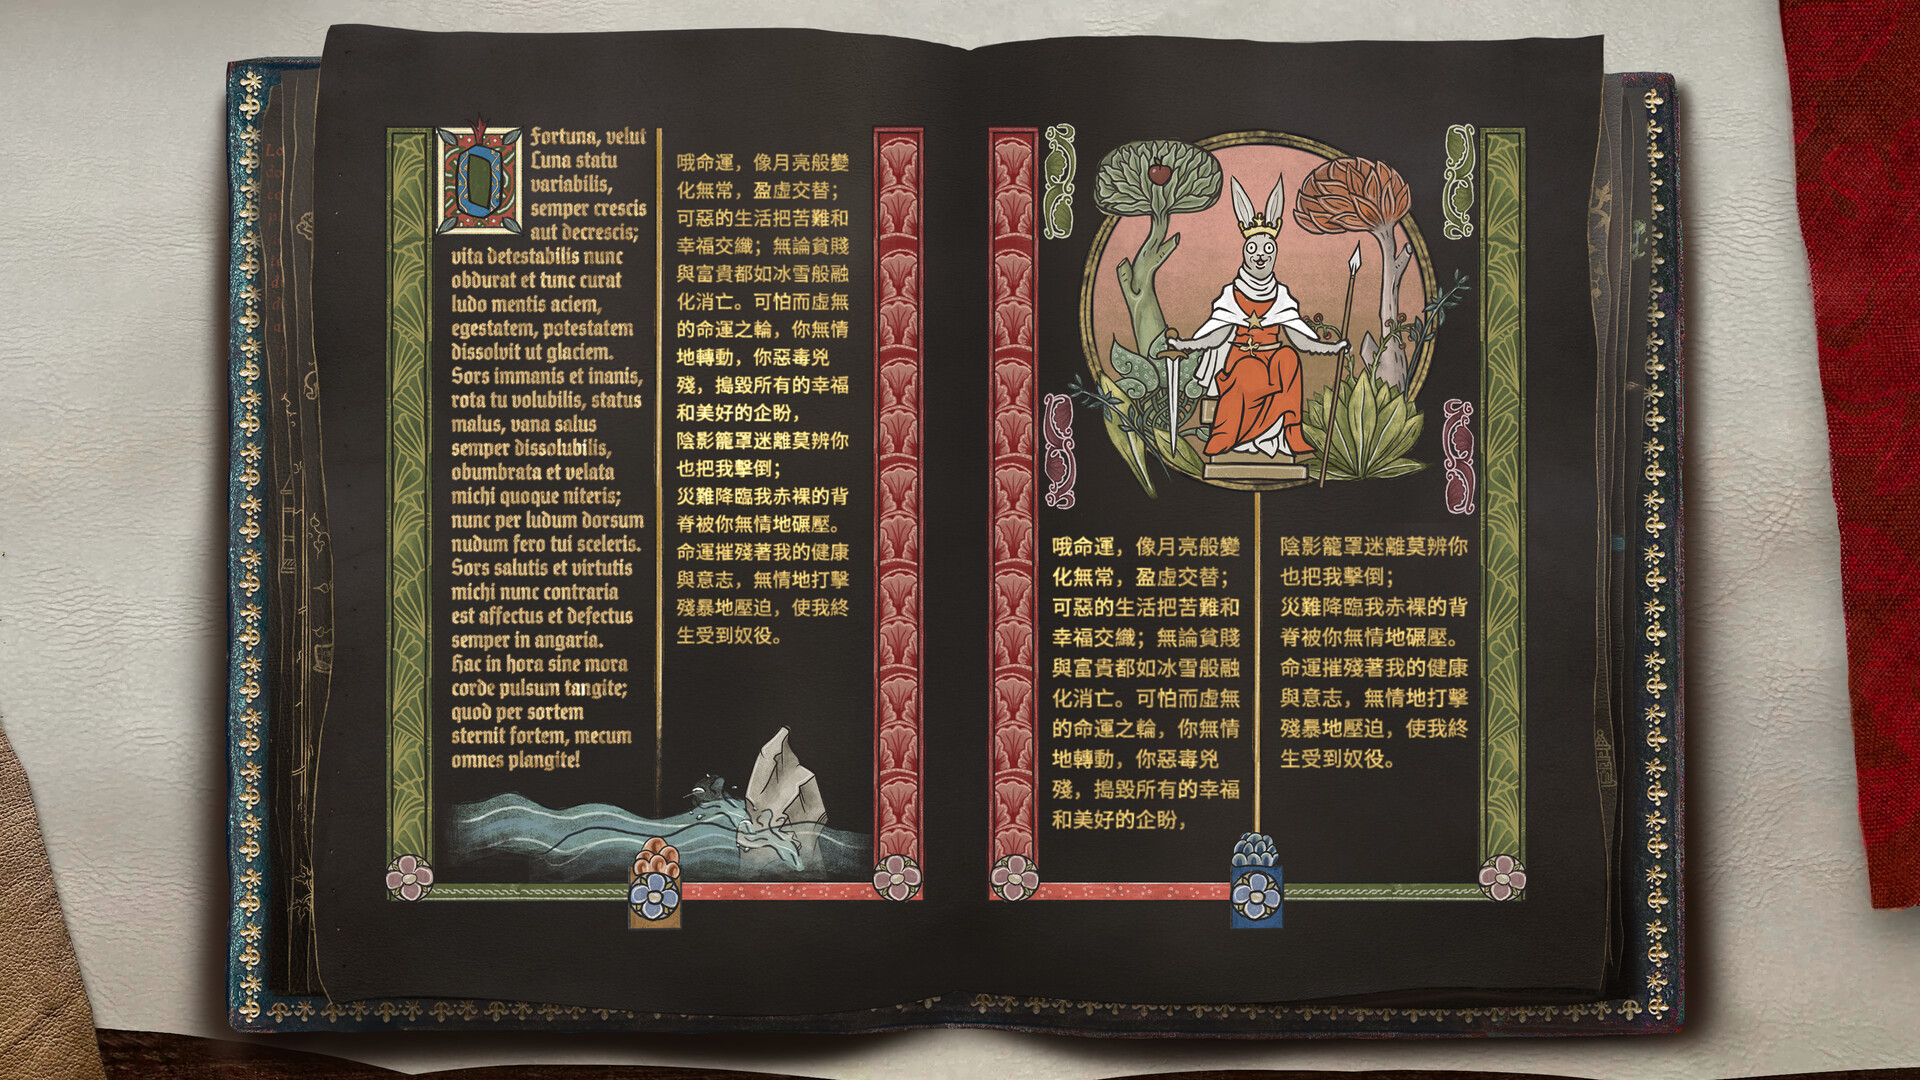 O Fortuna, velut
Luna statu
variabilis,
semper crescis
aut decrescis;
vita detestabilis nunc
obdurat et tunc curat
ludo mentis aciem,
egestatem, potestatem
dissolvit ut glaciem.
Sors immanis et inanis,
rota tu volubilis, status
malus, vana salus
semper dissolubilis,
obumbrata et velata
michi quoque niteris;
nunc per ludum dorsum
nudum fero tui sceleris.
Sors salutis et virtutis
michi nunc contraria
est affectus et defectus
semper in angaria.
Hac in hora sine mora
corde pulsum tangite;
quod per sortem
sternit fortem, mecum
omnes plangite!
哦命運，像月亮般變
化無常，盈虛交替；
可惡的生活把苦難和
幸福交織；無論貧賤
與富貴都如冰雪般融
化消亡。可怕而虛無
的命運之輪，你無情
地轉動，你惡毒兇
殘，搗毀所有的幸福
和美好的企盼，
陰影籠罩迷離莫辨你
也把我擊倒；
災難降臨我赤裸的背
脊被你無情地碾壓。
命運摧殘著我的健康
與意志，無情地打擊
殘暴地壓迫，使我終
生受到奴役。
哦命運，像月亮般變
化無常，盈虛交替；
可惡的生活把苦難和
幸福交織；無論貧賤
與富貴都如冰雪般融
化消亡。可怕而虛無
的命運之輪，你無情
地轉動，你惡毒兇
殘，搗毀所有的幸福
和美好的企盼，
陰影籠罩迷離莫辨你
也把我擊倒；
災難降臨我赤裸的背
脊被你無情地碾壓。
命運摧殘著我的健康
與意志，無情地打擊
殘暴地壓迫，使我終
生受到奴役。